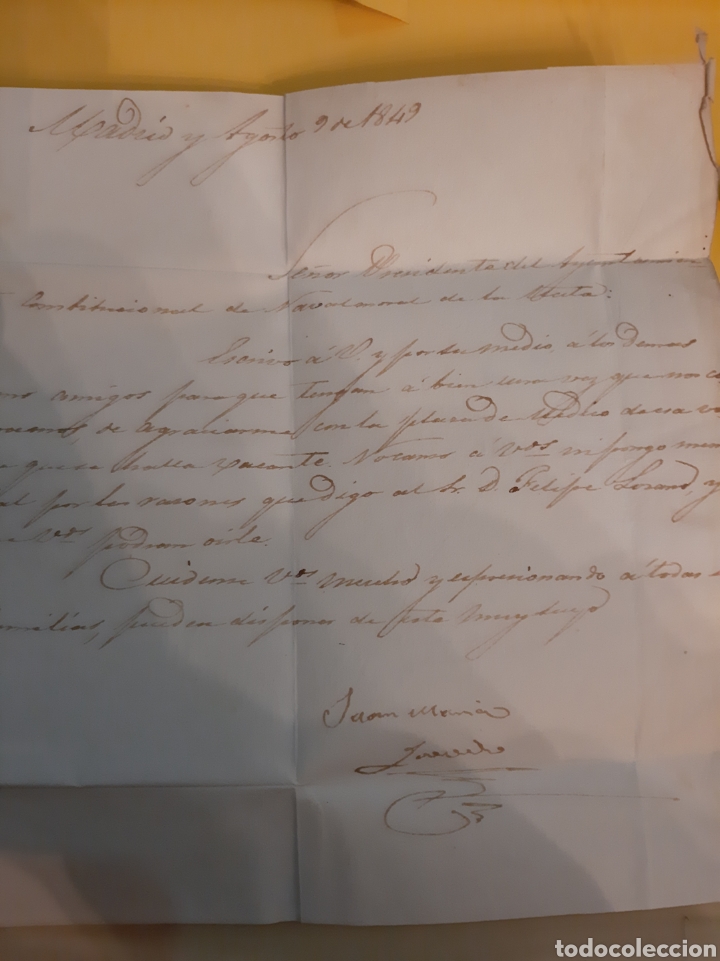 Madrid y Agosto 9 de 1849
Señor Presidente del Ayuntamien
Constitucional de Navalmoral de la Mata:
Escrivo á V. y por su medio, á los demas
amigos para que tengan á bien una vez que nos co
de agraciarme con la plaza de Medico de esa v
que se halla vacante. No canso á Vds ni pongo
por las razones que digo al Sr. D. Felipe Lozano, y
Vds podran oirle.
Cuidense Vds mucho y espresionando á todas
milias, pueden disponer de este muy suyo
Juan Maria
todocoleccion